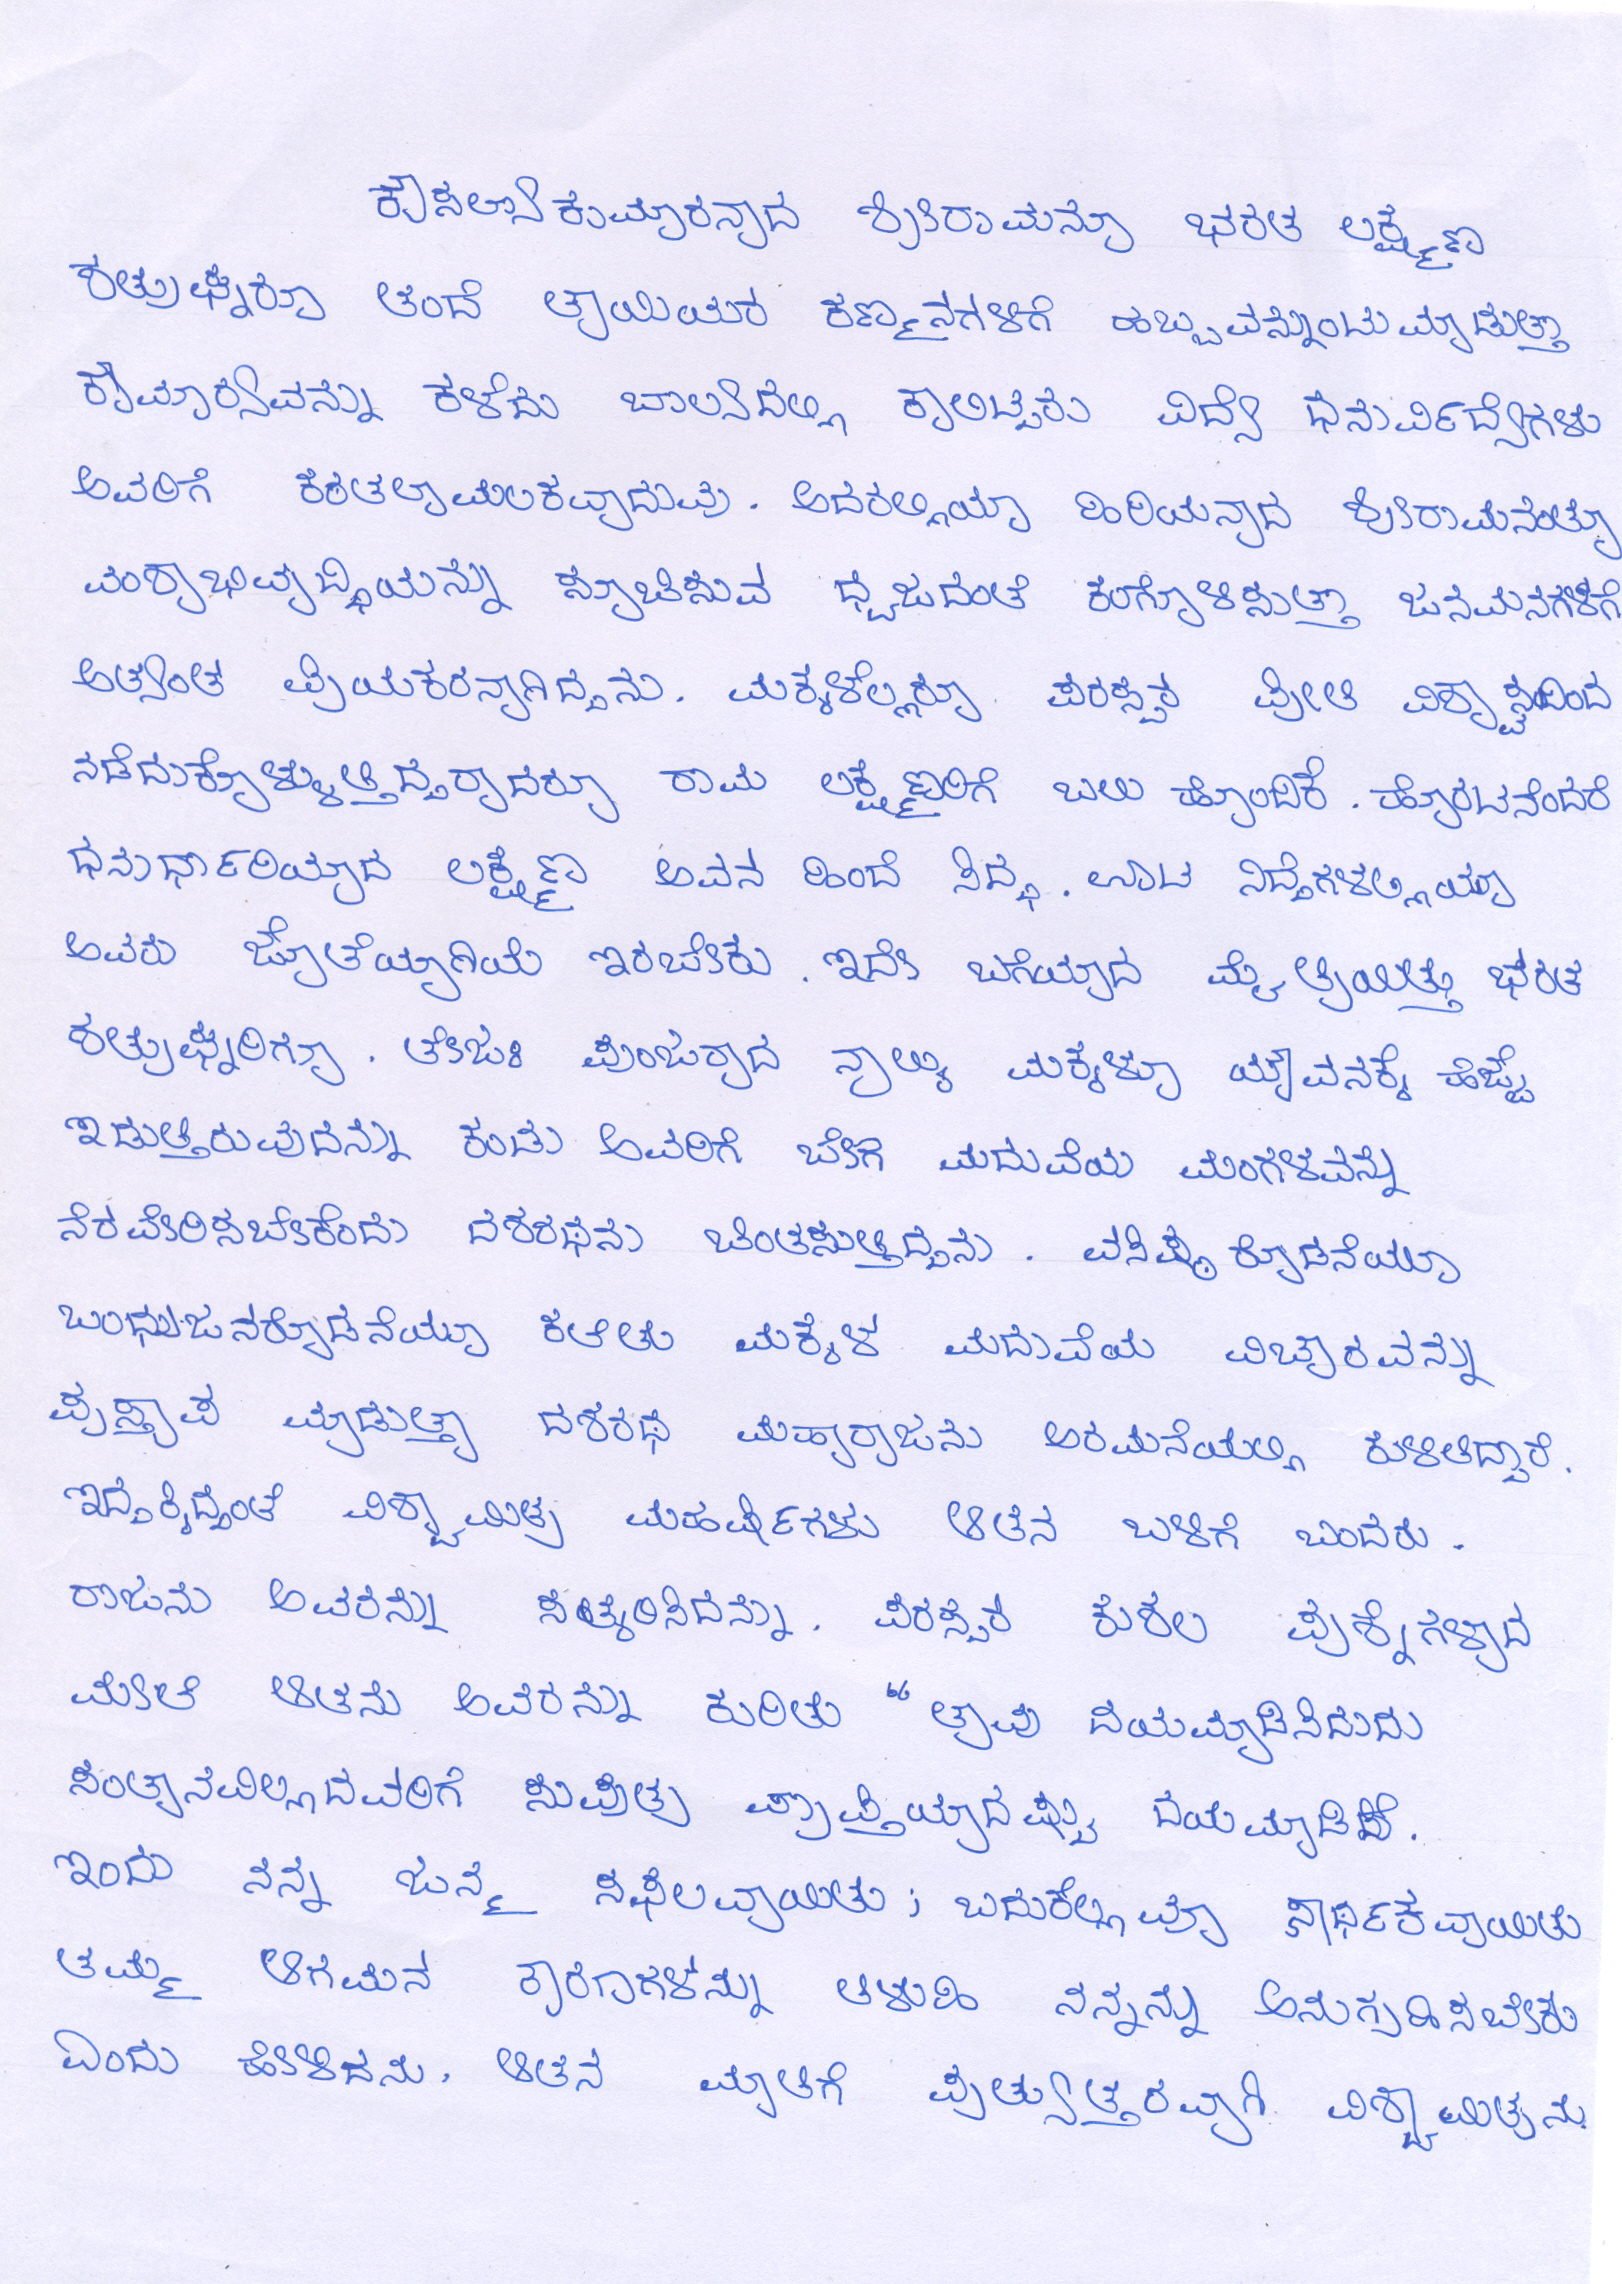 ಕೌಸಲ್ಯಾಕುಮಾರನಾದ ಶ್ರೀರಾಮನೂ ಭರತ ಲಕ್ಷ್ಮಣ
ಶತ್ರುಘ್ನರೂ ತಂದೆ ತಾಯಿಯರ ಕಣ್ಮನಗಳಿಗೆ ಹಬ್ಬವನ್ನುಂಟುಮಾಡುತ್ತಾ
ಕೌಮಾರ್ಯವನ್ನು ಕಳೆದು ಬಾಲ್ಯದಲ್ಲಿ ಕಾಲಿಟ್ಟರು ವಿದ್ಯೆ ಧನುರ್ವಿದ್ಯೆಗಳು
ಅವರಿಗೆ ಕರತಲಾಮಲಕವಾದುವು. ಅದರಲ್ಲಿಯೂ ಹಿರಿಯನಾದ ಶ್ರೀರಾಮನಂತೂ
ವಂಶಾಭಿವೃದ್ಧಿಯನ್ನು ಸೂಚಿಸುವ ಧ್ವಜದಂತೆ ಕಂಗೊಳಿಸುತ್ತಾ ಜನಮನಗಳಿಗೆ
ಅತ್ಯಂತ ಪ್ರಿಯಕರನಾಗಿದ್ದನು. ಮಕ್ಕಳೆಲ್ಲರೂ ಪರಸ್ಪರ ಪ್ರೀತಿ ವಿಶ್ವಾಸದಿಂದ
ನಡೆದುಕೊಳ್ಳುತ್ತಿದ್ದರಾದರೂ ರಾಮ ಲಕ್ಷ್ಮಣರಿಗೆ ಬಲು ಹೊಂದಿಕೆ. ಹೊರಟನೆಂದರೆ
ಧನುರ್ಧಾರಿಯಾದ ಲಕ್ಷ್ಮಣ ಅವನ ಹಿಂದೆ ಸಿದ್ಧ. ಊಟ ನಿದ್ದೆಗಳಲ್ಲಿಯೂ
ಅವರು ಜೊತೆಯಾಗಿಯೆ ಇರಬೇಕು. ಇದೇ ಬಗೆಯಾದ ಮೈತ್ರಿಯಿತ್ತು ಭರತ
ಶತ್ರುಘ್ನರಿಗೂ. ತೇಜಃ ಪುಂಜರಾದ ನಾಲ್ಕು ಮಕ್ಕಳೂ ಯೌವನಕ್ಕೆ ಹೆಜ್ಜೆ
ಇಡುತ್ತಿರುವುದನ್ನು ಕಂಡು ಅವರಿಗೆ ಬೇಗ ಮದುವೆಯ ಮಂಗಳವನ್ನು
ನೆರವೇರಿಸಬೇಕೆಂದು ದಶರಥನು ಚಿಂತಿಸುತ್ತಿದ್ದನು. ವಸಿಷ್ಠರೊಡನೆಯೂ
ಬಂಧುಜನರೊಡನೆಯೂ ಕಲೆತು ಮಕ್ಕಳ ಮದುವೆಯ ವಿಚಾರವನ್ನು
ಪ್ರಸ್ತಾಪ ಮಾಡುತ್ತಾ ದಶರಥ ಮಹಾರಾಜನು ಅರಮನೆಯಲ್ಲಿ ಕುಳಿತಿದ್ದಾರೆ.
ಇದ್ದಕ್ಕಿದ್ದಂತೆ ವಿಶ್ವಾಮಿತ್ರ ಮಹರ್ಷಿಗಳು ಆತನ ಬಳಿಗೆ ಬಂದರು.
ರಾಜನು ಅವರನ್ನು ಸತ್ಕರಿಸಿದನು. ಪರಸ್ಪರ ಕುಶಲ ಪ್ರಶ್ನೆಗಳಾದ
ಮೇಲೆ ಆತನು ಅವರನ್ನು ಕುರಿತು “ತಾವು ದಯಮಾಡಿಸಿದುದು
ಸಂತಾನವಿಲ್ಲದವರಿಗೆ ಸುಪುತ್ರ ಪ್ರಾಪ್ತಿಯಾದಷ್ಟು
ಇಂದು ನನ್ನ ಜನ್ಮ ಸಫಲವಾಯಿತು; ಬದುಕೆಲ್ಲವೂ ಸಾರ್ಥಕವಾಯಿತು
ತಮ್ಮ ಆಗಮನ ಕಾರಣಗಳನ್ನು ತಿಳುಹಿ ನನ್ನನ್ನು ಅನುಗ್ರಹಿಸಬೇಕು
ಎಂದು ಹೇಳಿದನು. ಆತನ ಮಾತಿಗೆ ಪ್ರತ್ಯುತ್ತರವಾಗಿ ವಿಶ್ವಾಮಿತ್ರನು